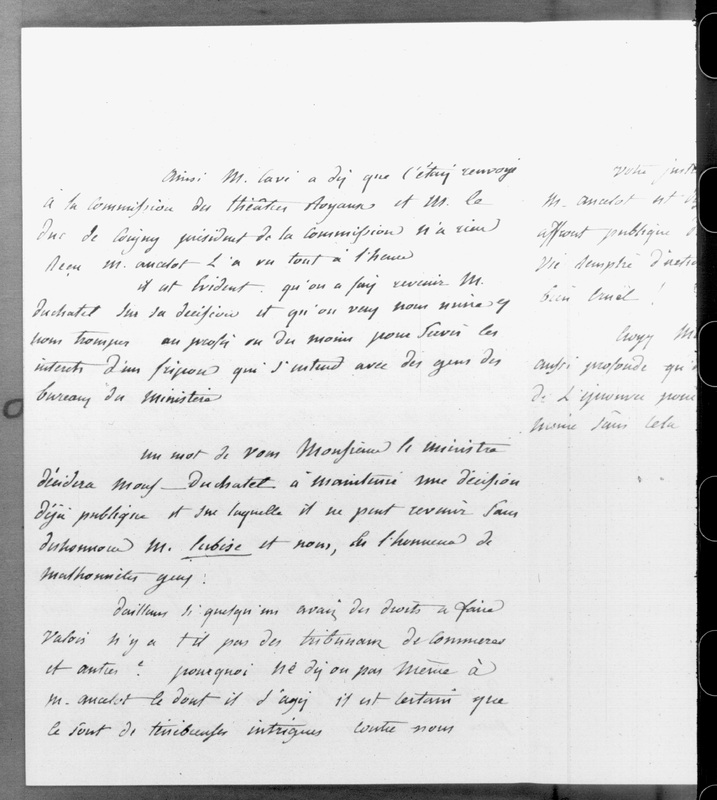 Ainsi M. Cavé a dij que c'étaij renvoyé
à la Commission des théâtres Royaux et M. le
duc de Coigny président de la Commission n'a rien
reçu M. ancelot L'a vu tout à l'heure
il est Evident qu'on a faij revenir M.
duchatel sur sa décision et qu'on veuj nous nuire et
nous tromper au profit ou du moins pour servir les
interets d'un fripon qui s'entend avec des gens des
bureaux du Ministère
un mot de vous Monsieur le ministre
décidera Mons Duchatel à maintenir une décision
déjà publique et sur laquelle il ne peut revenir sans
deshonneur M. lubise et nous, à l'honneur de
malhonnêtes gens.
dailleurs si quelqu'un avaij des droits a faire
valoir n'y a t il pas des tribunaux de Commerce
et autres ? pourquoi ne dij on pas même à
M. ancelot ce dont il s'agij il est certain que
ce sont de ténébreuses intrigues contre nous
Votre
M. ancelot est
affront publique
bien Cruel !
M
aussi profonde qu'
de L'éprouver pour
même sans cela